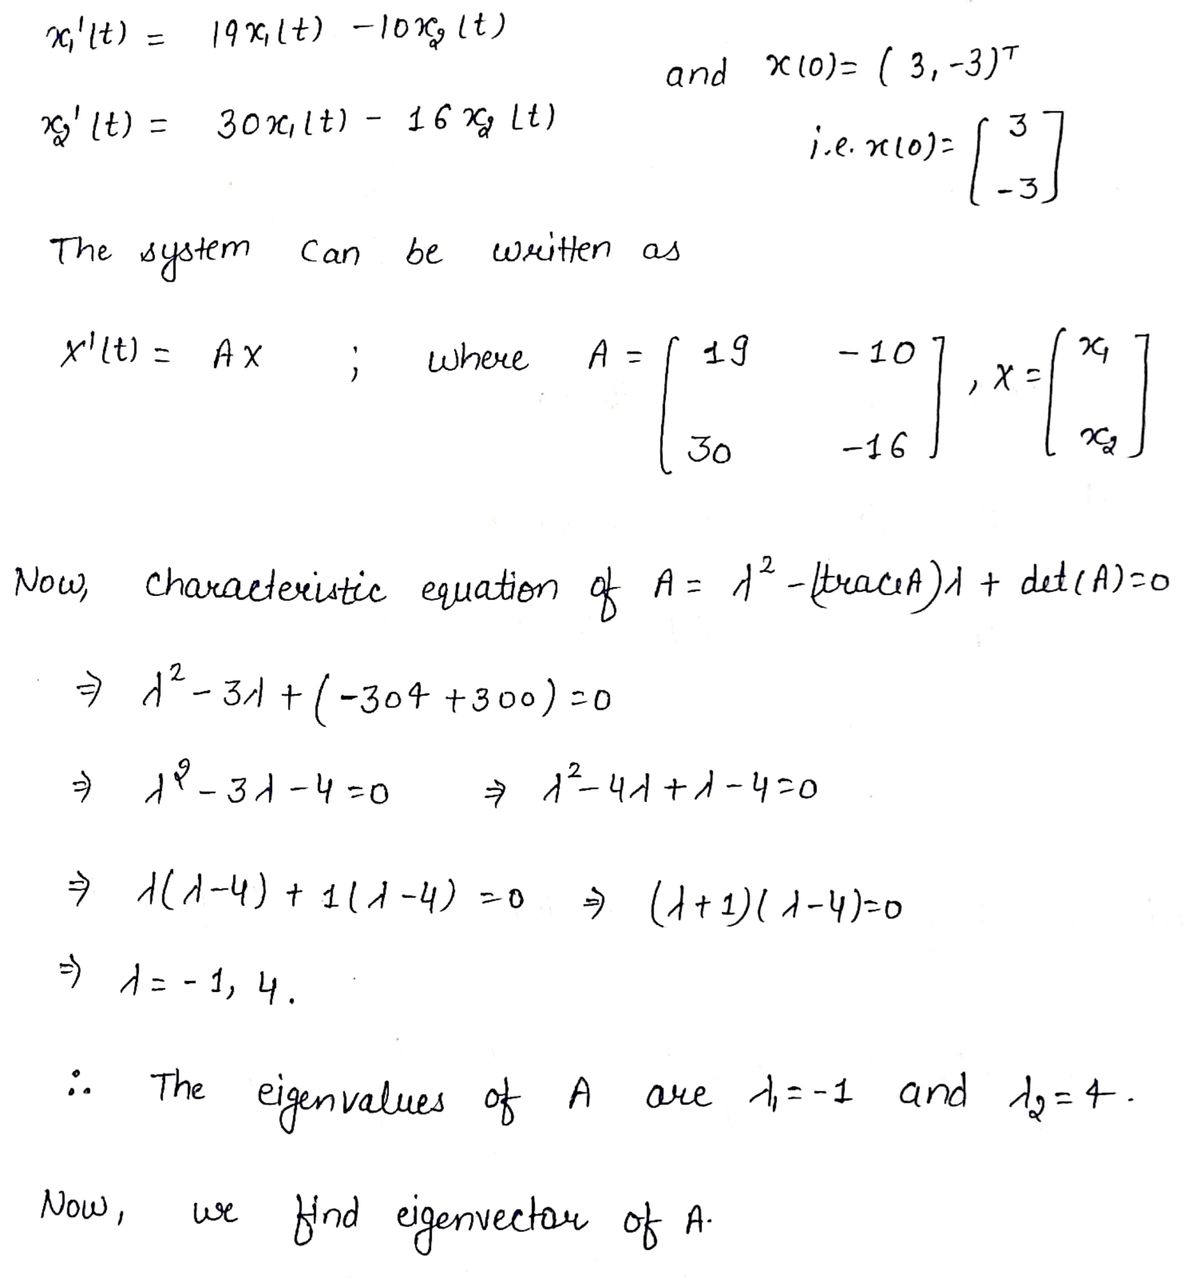 x₁'(t) = 19x₁(t) - 10x₂(t)
and x(0) = (3, -3)ᵀ
x₂'(t) = 30x₁(t) - 16x₂(t)
i.e. x(0) = [3
-3]
The system can be written as
X'(t) = AX ; where A = [19 -10
30 -16], X = [x₁
x₂]
Now, characteristic equation of A = λ² - (traceA)λ + det(A) = 0
⇒ λ² - 3λ + (-304 + 300) = 0
⇒ λ² - 3λ - 4 = 0 ⇒ λ² - 4λ + λ - 4 = 0
⇒ λ(λ-4) + 1(λ-4) = 0 ⇒ (λ+1)(λ-4) = 0
⇒ λ = -1, 4.
∴ The eigenvalues of A are λ₁ = -1 and λ₂ = 4.
Now, we find eigenvector of A.